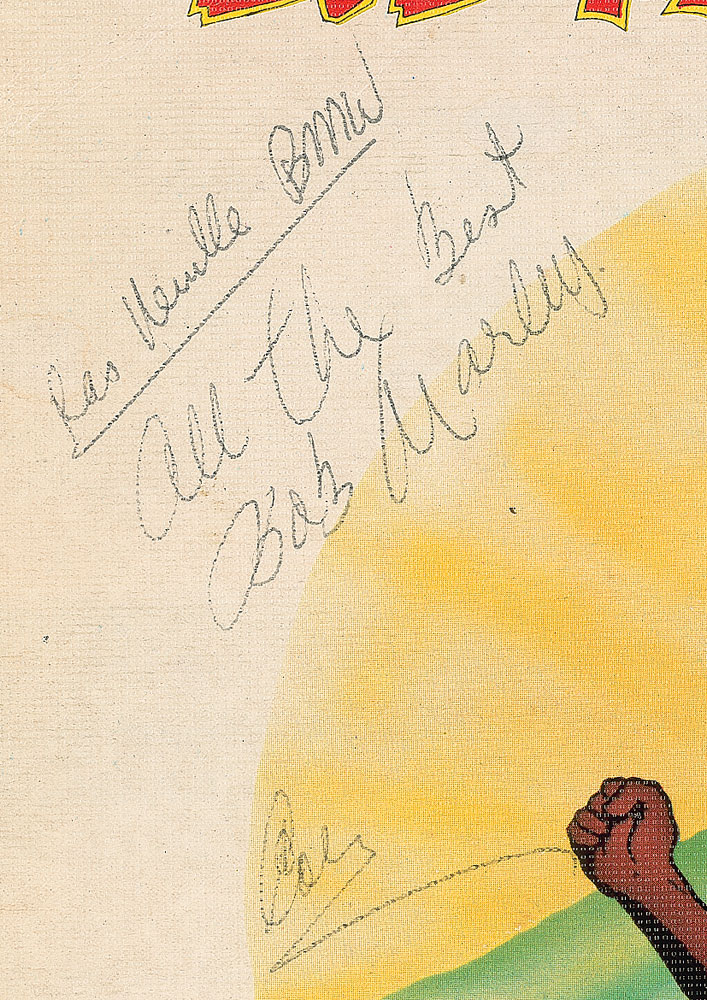 Ras Neville BMW
All The Best
Bob Marley.